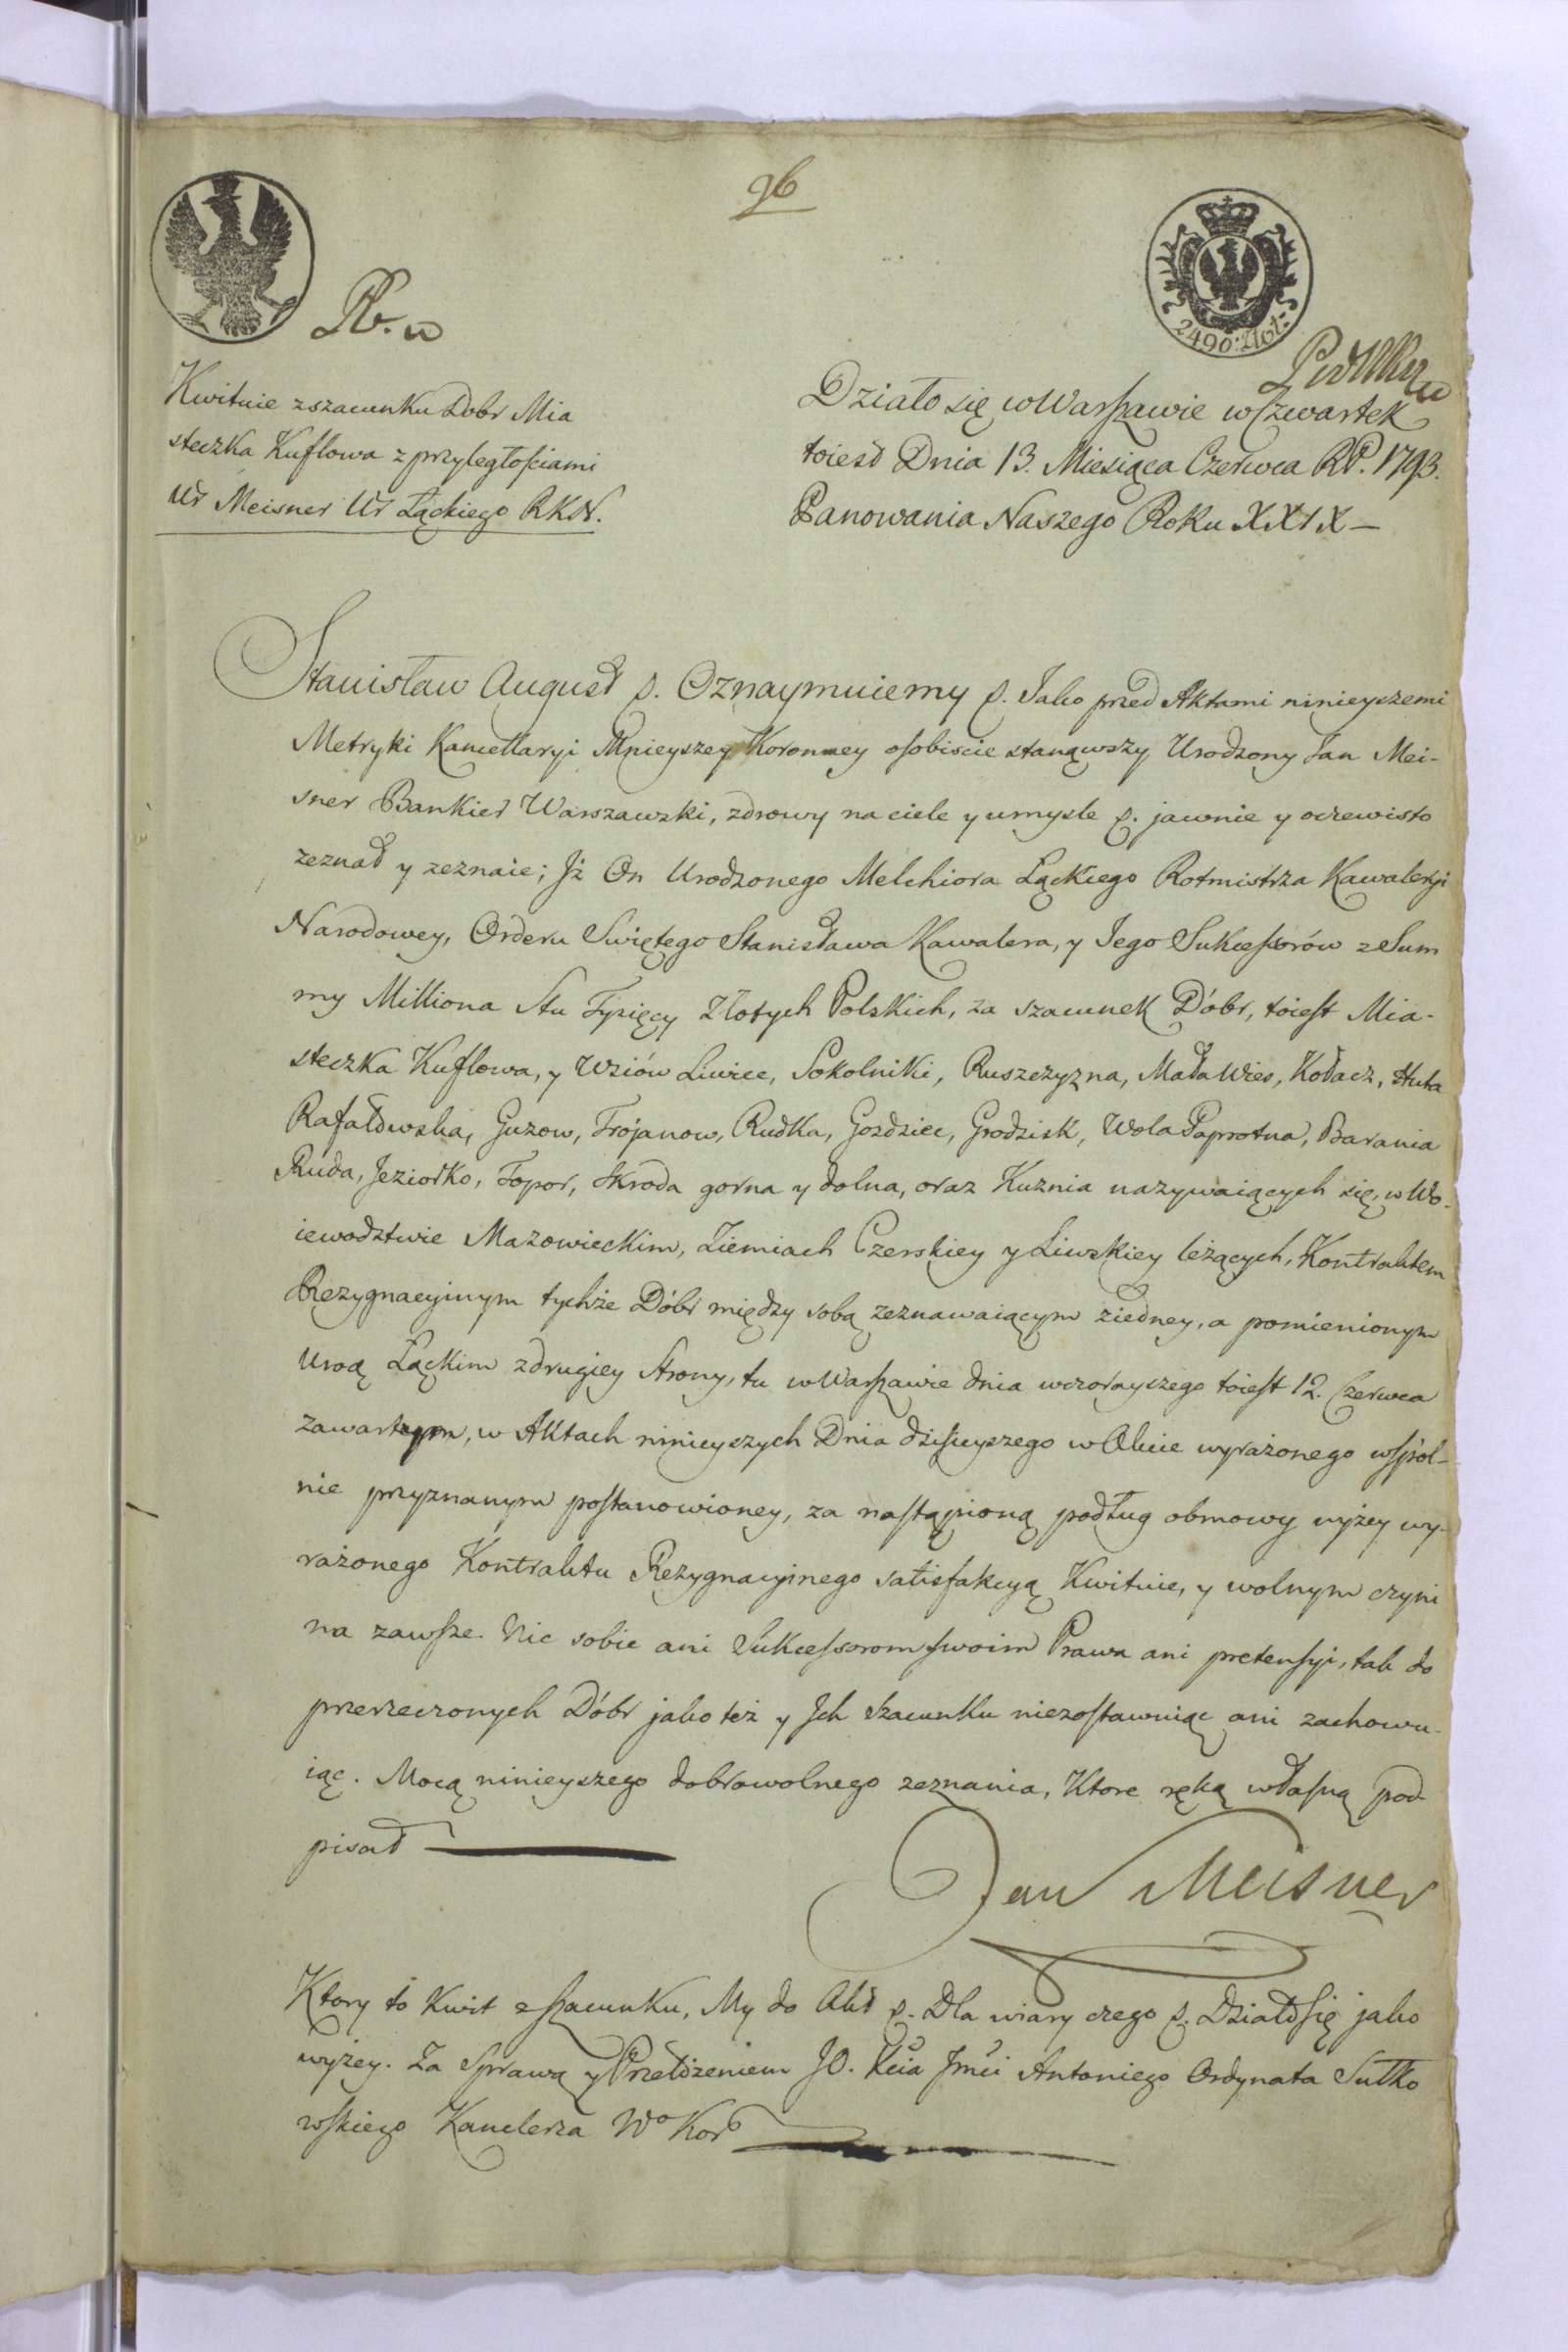 96
2490: Złot:
Kwituie z szacunku Dobr Mia
steczka Kuflowa z przyległościami
Ur Meisner Ur Łąckiego RKN.
Działo się w Warszawie w Czwartek
toiest Dnia 13. Miesiąca Czerwca RP. 1793.
Panowania Naszego Roku XXIX —
Stanisław August p. Oznaymuiemy p. Jako przed Aktami ninieyszemi
Metryki Kancellaryi Mnieyszey Koronney osobiscie stanąwszy Urodzony Jan Mei-
sner Bankier Warszawski, zdrowy na ciele y umysle p. jawnie y oczewisto
zeznał y zeznaie; Jż On Urodzonego Melchiora Łąckiego Rotmistrza Kawaleryi
Narodowey, Orderu Swiętego Stanisława Kawalera, y Jego Sukcessorów z Sum
my Milliona Stu Tysięcy Złotych Polskich, za szacunek Dóbr, toiest Mia-
steczka Kuflowa, y Wsiów Liwiec, Sokolniki, Ruszczyzna, Mała Wies, Kołacz, Huta
Rafałowska, Guzow, Trojanow, Rudka, Gozdziec, Grodzisk, Wola Paprotna, Barania
Ruda, Jeziorko, Topor, Skroda gorna y dolna, oraz Kuznia nazywaiących się, w Wo-
iewodztwie Mazowieckim, Ziemiach Czerskiey y Liwskiey leżących, Kontraktem
Rezygnacyinym tychże Dóbr między sobą zeznawaiącym z iedney, a pomienionym
Urod Łąckim z drugiey Strony, tu w Warszawie dnia wczorayszego toiest 12. Czerwca
zawartym, w Aktach ninieyszych Dnia dzisieyszego w Akcie wyrażonego wspól-
nie przyznanym postanowioney, za nastąpioną podług obmowy wyżey wy-
rażonego Kontraktu Rezygnacyinego satisfakcyą Kwituie, y wolnym czyni
na zawsze. Nic sobie ani Sukcessorom swoim Prawa ani pretensyi, tak do
przerzeczonych Dóbr jako też y Jch szacunku niezostawuiąc ani zachowu-
iąc. Mocą ninieyszego dobrowolnego zeznania, Ktore ręką własną pod-
pisał
Jan Meisner
Ktory to Kwit z szacunku, My do Akt p. Dla wiary czego p. Działo się jako
wyżey. Za Sprawą y Przełożeniem JO. Xcia Jmći Antoniego Ordynata Sułko
wskiego Kanclerza Wo Kor